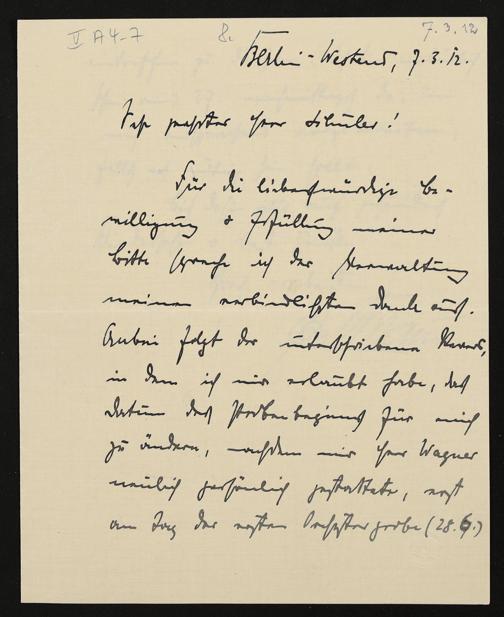 V A 4-7 8. 7.3.12
Berlin-Westend, 7.3.12.
Sehr geehrter Herr Schuler!
Für die liebenswürdige Be-
willigung & Erfüllung meiner
Bitte spreche ich der Verwaltung
meinen verbindlichsten Dank aus.
Anbei folgt der unterschriebene Revers,
in dem ich mir erlaubt habe, das
Datum des Probenbeginns für mich
zu ändern, nachdem mir Herr Wagner
neulich persönlich gestattete, erst
am Tag der ersten Orchesterprobe (28.6.)